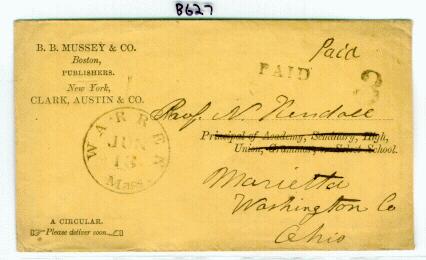 B627
B. B. MUSSEY & CO.
Boston,
PUBLISHERS.
New York,
CLARK, AUSTIN & CO.
Paid
PAID
3
WARREN
JUN
13
Mass.
Prof. N. Kendall
Principal of Academy, Seminary, High,
Union, Grammar, or Select School.
Marietta
Washington Co
Ohio
A CIRCULAR.
Please deliver soon.